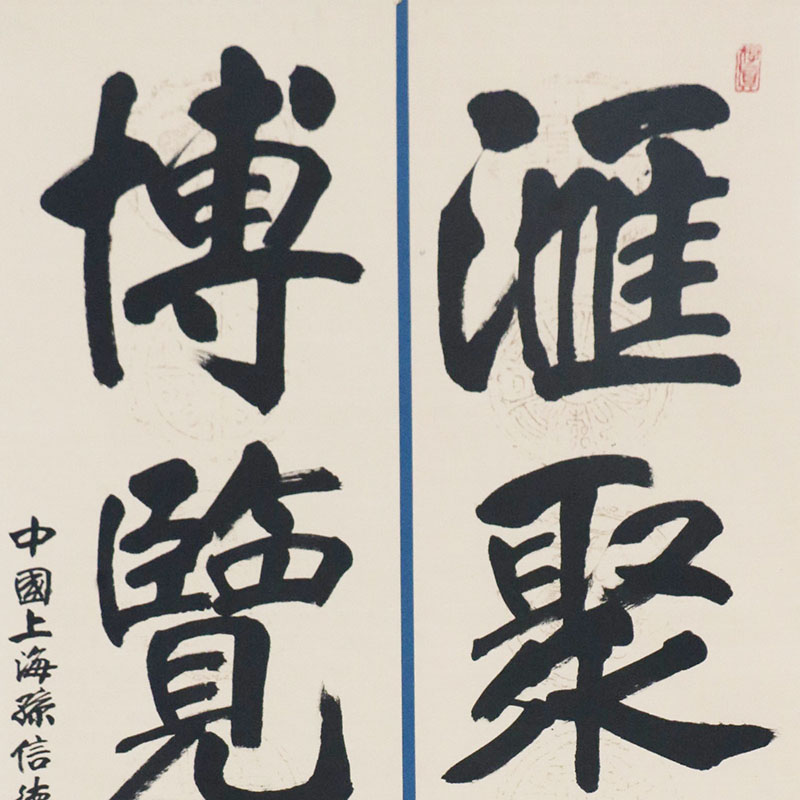 滙聚
博覽
中國上海孫信德